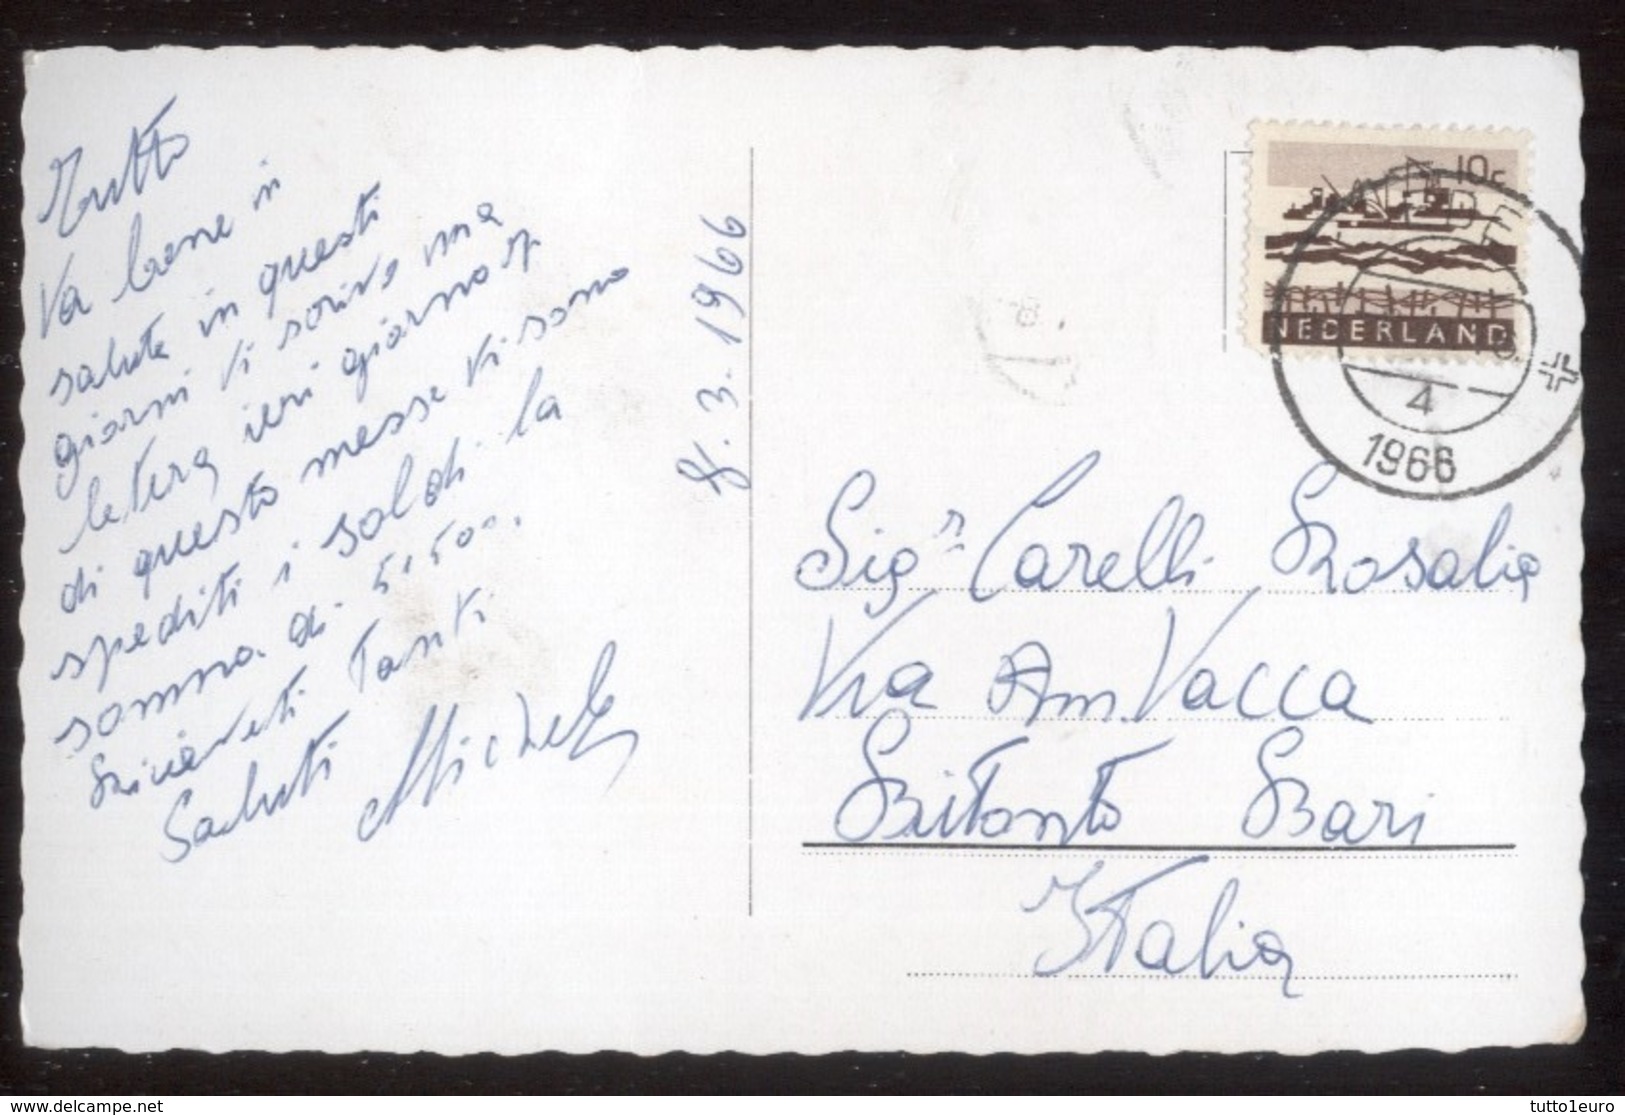 Tutto
Va bene in
salute in questi
giorni ti scrivo una
letera ieri giorno 7
di questo messe vi sono
spediti i soldi la
somma di
Tanti
Saluti Michele
8.3.1966
10c
NEDERLAND
4
1966
Sigr Carelli Rosalia
Via Am Vacca
Bitonto Bari
Italia
delcampe.net
tutto1euro